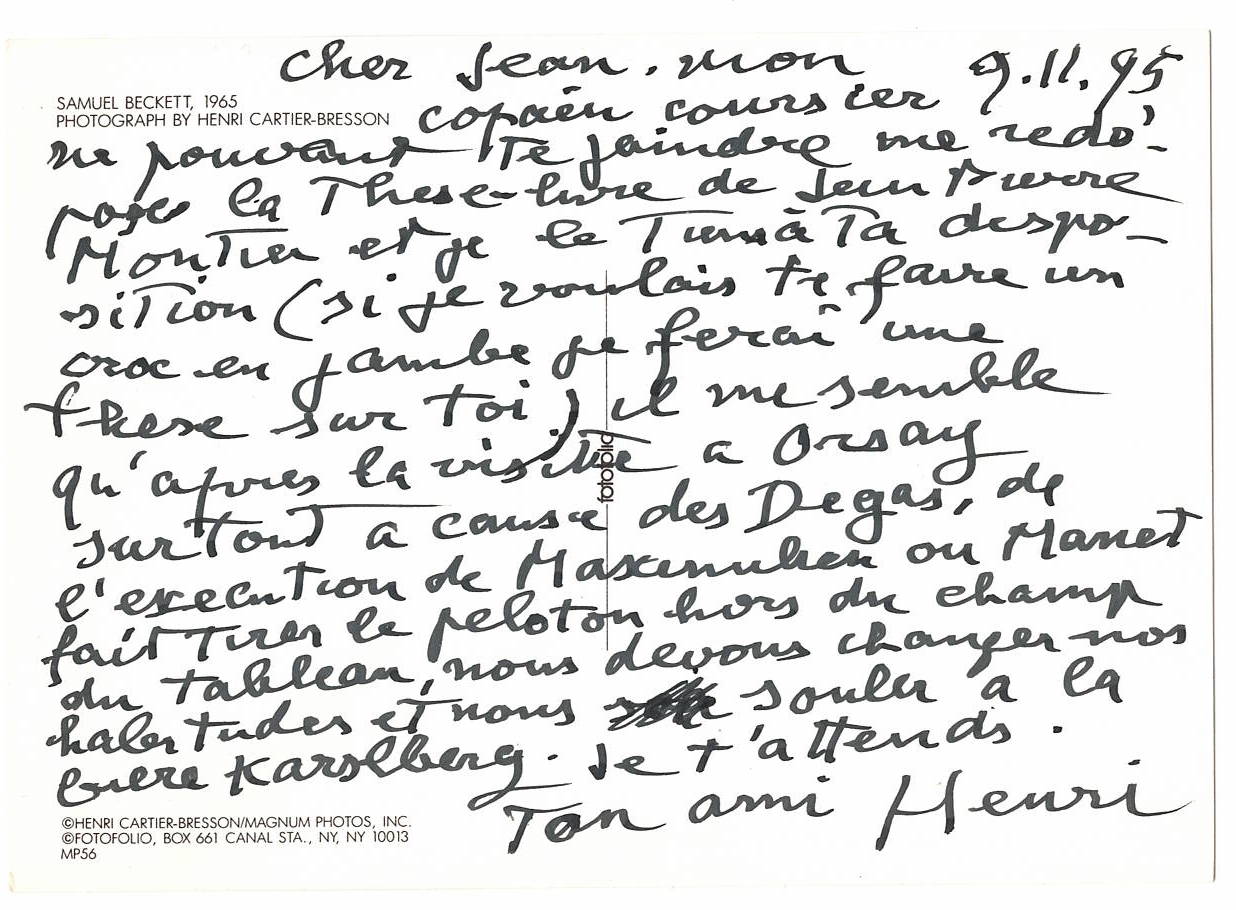 cher Jean. mon 9.11.95
SAMUEL BECKETT, 1965
PHOTOGRAPH BY HENRI CARTIER-BRESSON
copain coursier
ne pouvant te joindre me redé-
pose la These-livre de Jean Pierre
Montier et je le Tiens à Ta dispo-
siTion (si je voulais te faire un
croc en jambe je ferai une
these sur toi) il me semble
qu'apres la visite a Orsay
surtout a cause des Degas, de
l'execution de Maximilien ou Manet
fait Tirer le peloton hors du champ
du tableau, nous devons changer nos
habitudes et nous souler a la
biere Karslberg. Je t'attends.
Ton ami Henri
fotofolio
©HENRI CARTIER-BRESSON/MAGNUM PHOTOS, INC.
©FOTOFOLIO, BOX 661 CANAL STA., NY, NY 10013
MP56